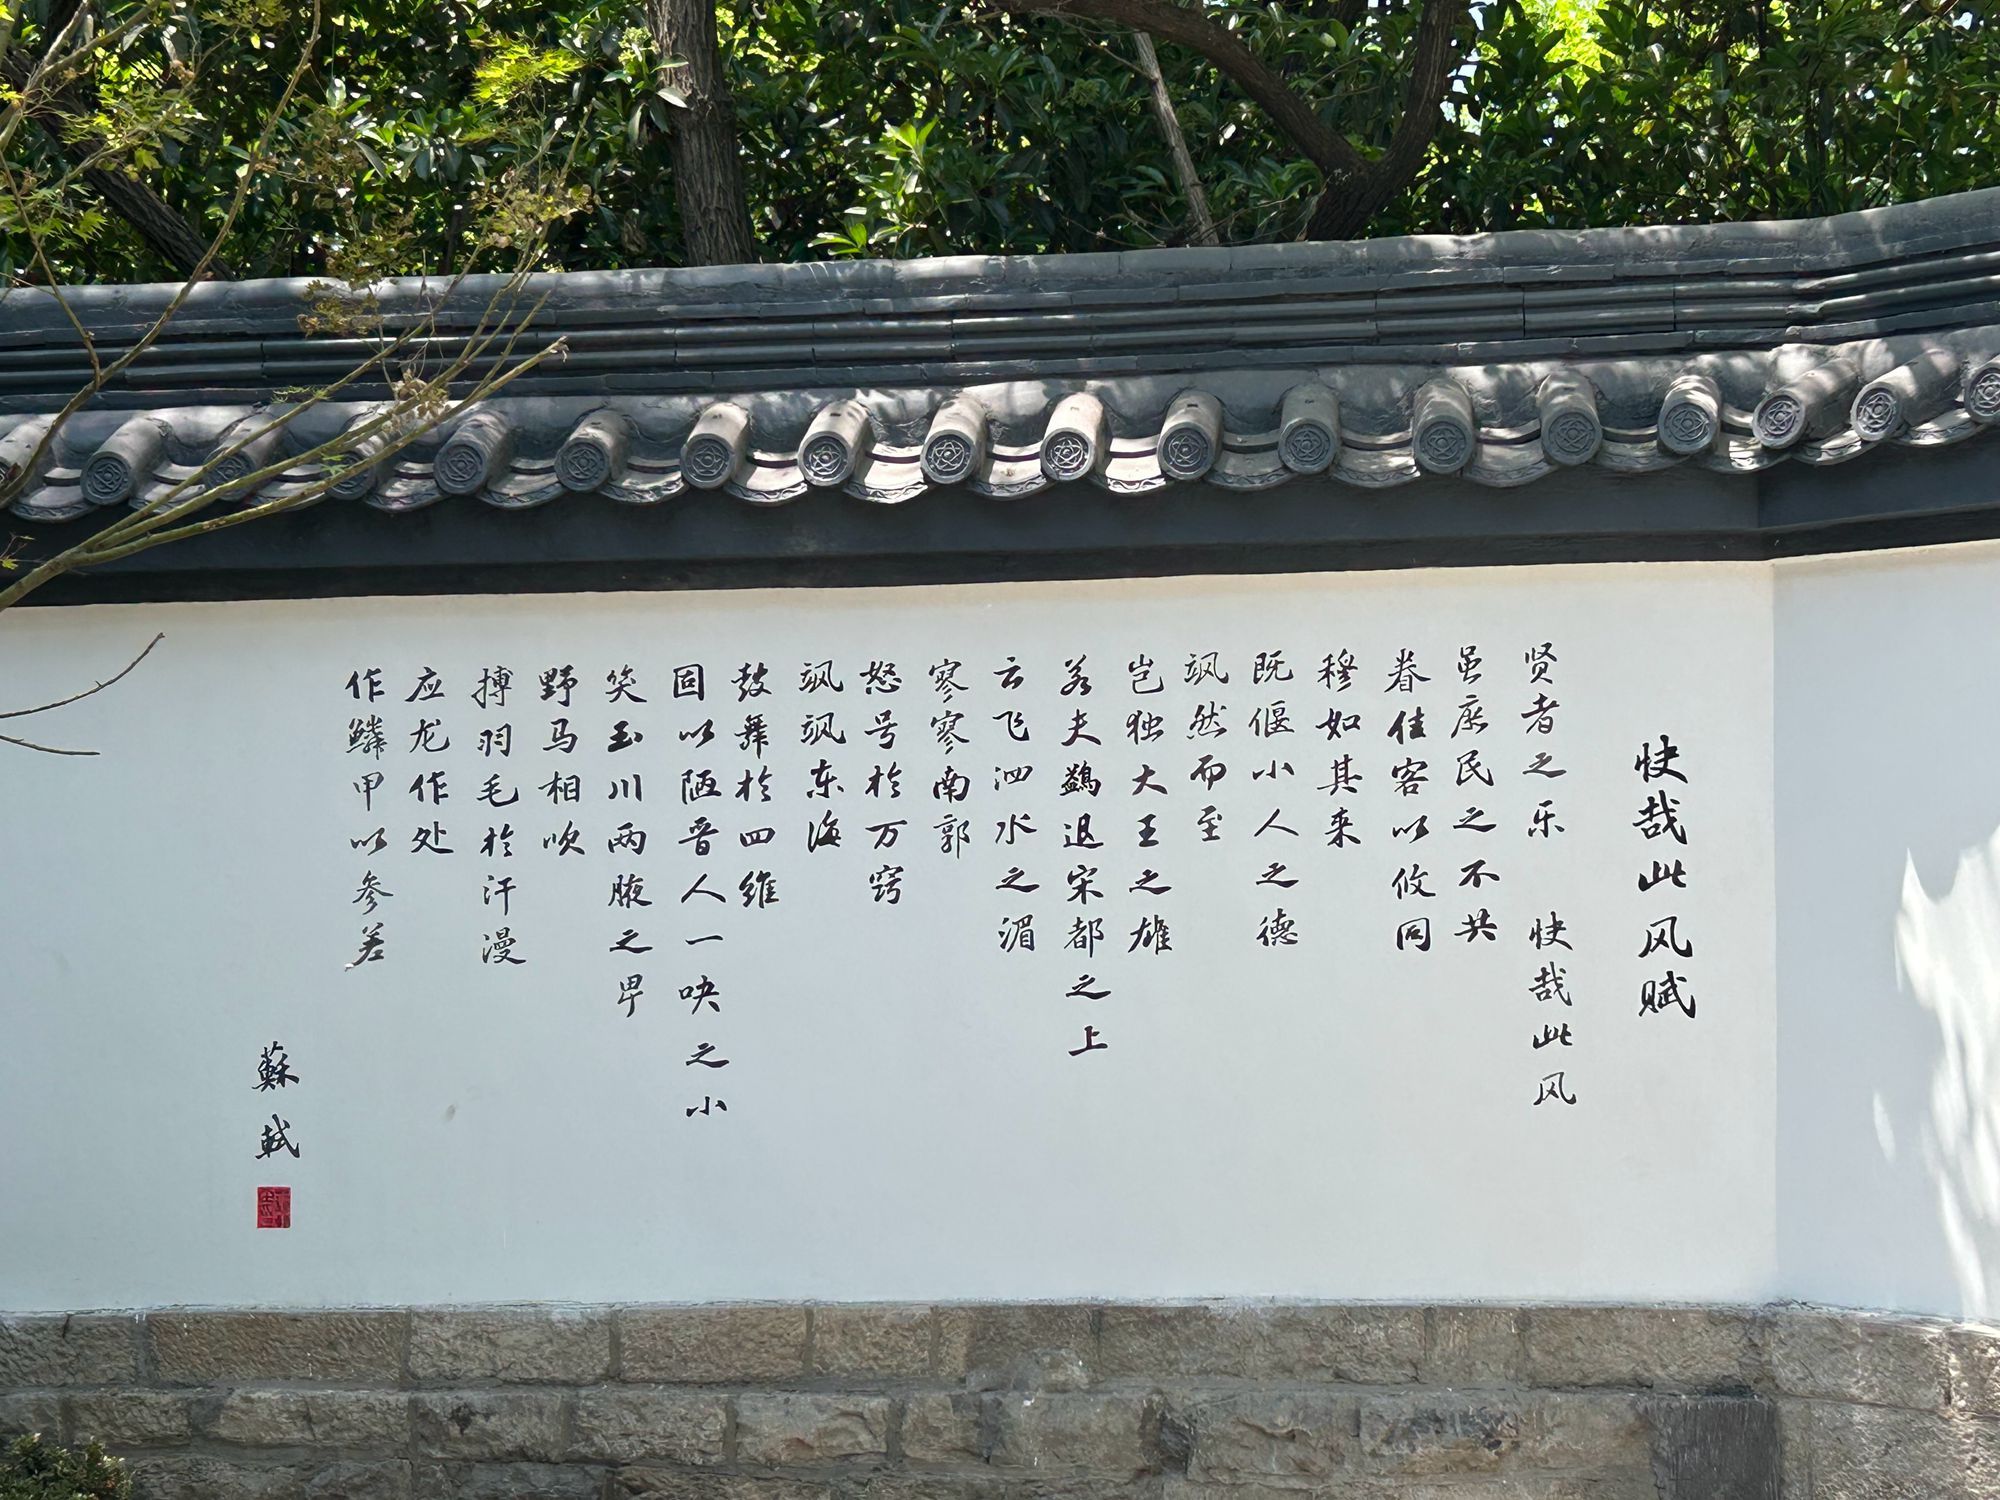 快哉此风赋
贤者之乐 快哉此风
虽庶民之不共
眷佳客以攸同
穆如其来
既偃小人之德
飒然而至
岂独大王之雄
若夫鹢退宋都之上
云飞泗水之湄
寥寥南郭
怒号于万窍
飒飒东海
鼓舞于四维
固以陋晋人一吷之小
笑玉川两腋之卑
野马相吹
搏羽毛于汗漫
应龙作处
作鳞甲以参差
蘇軾